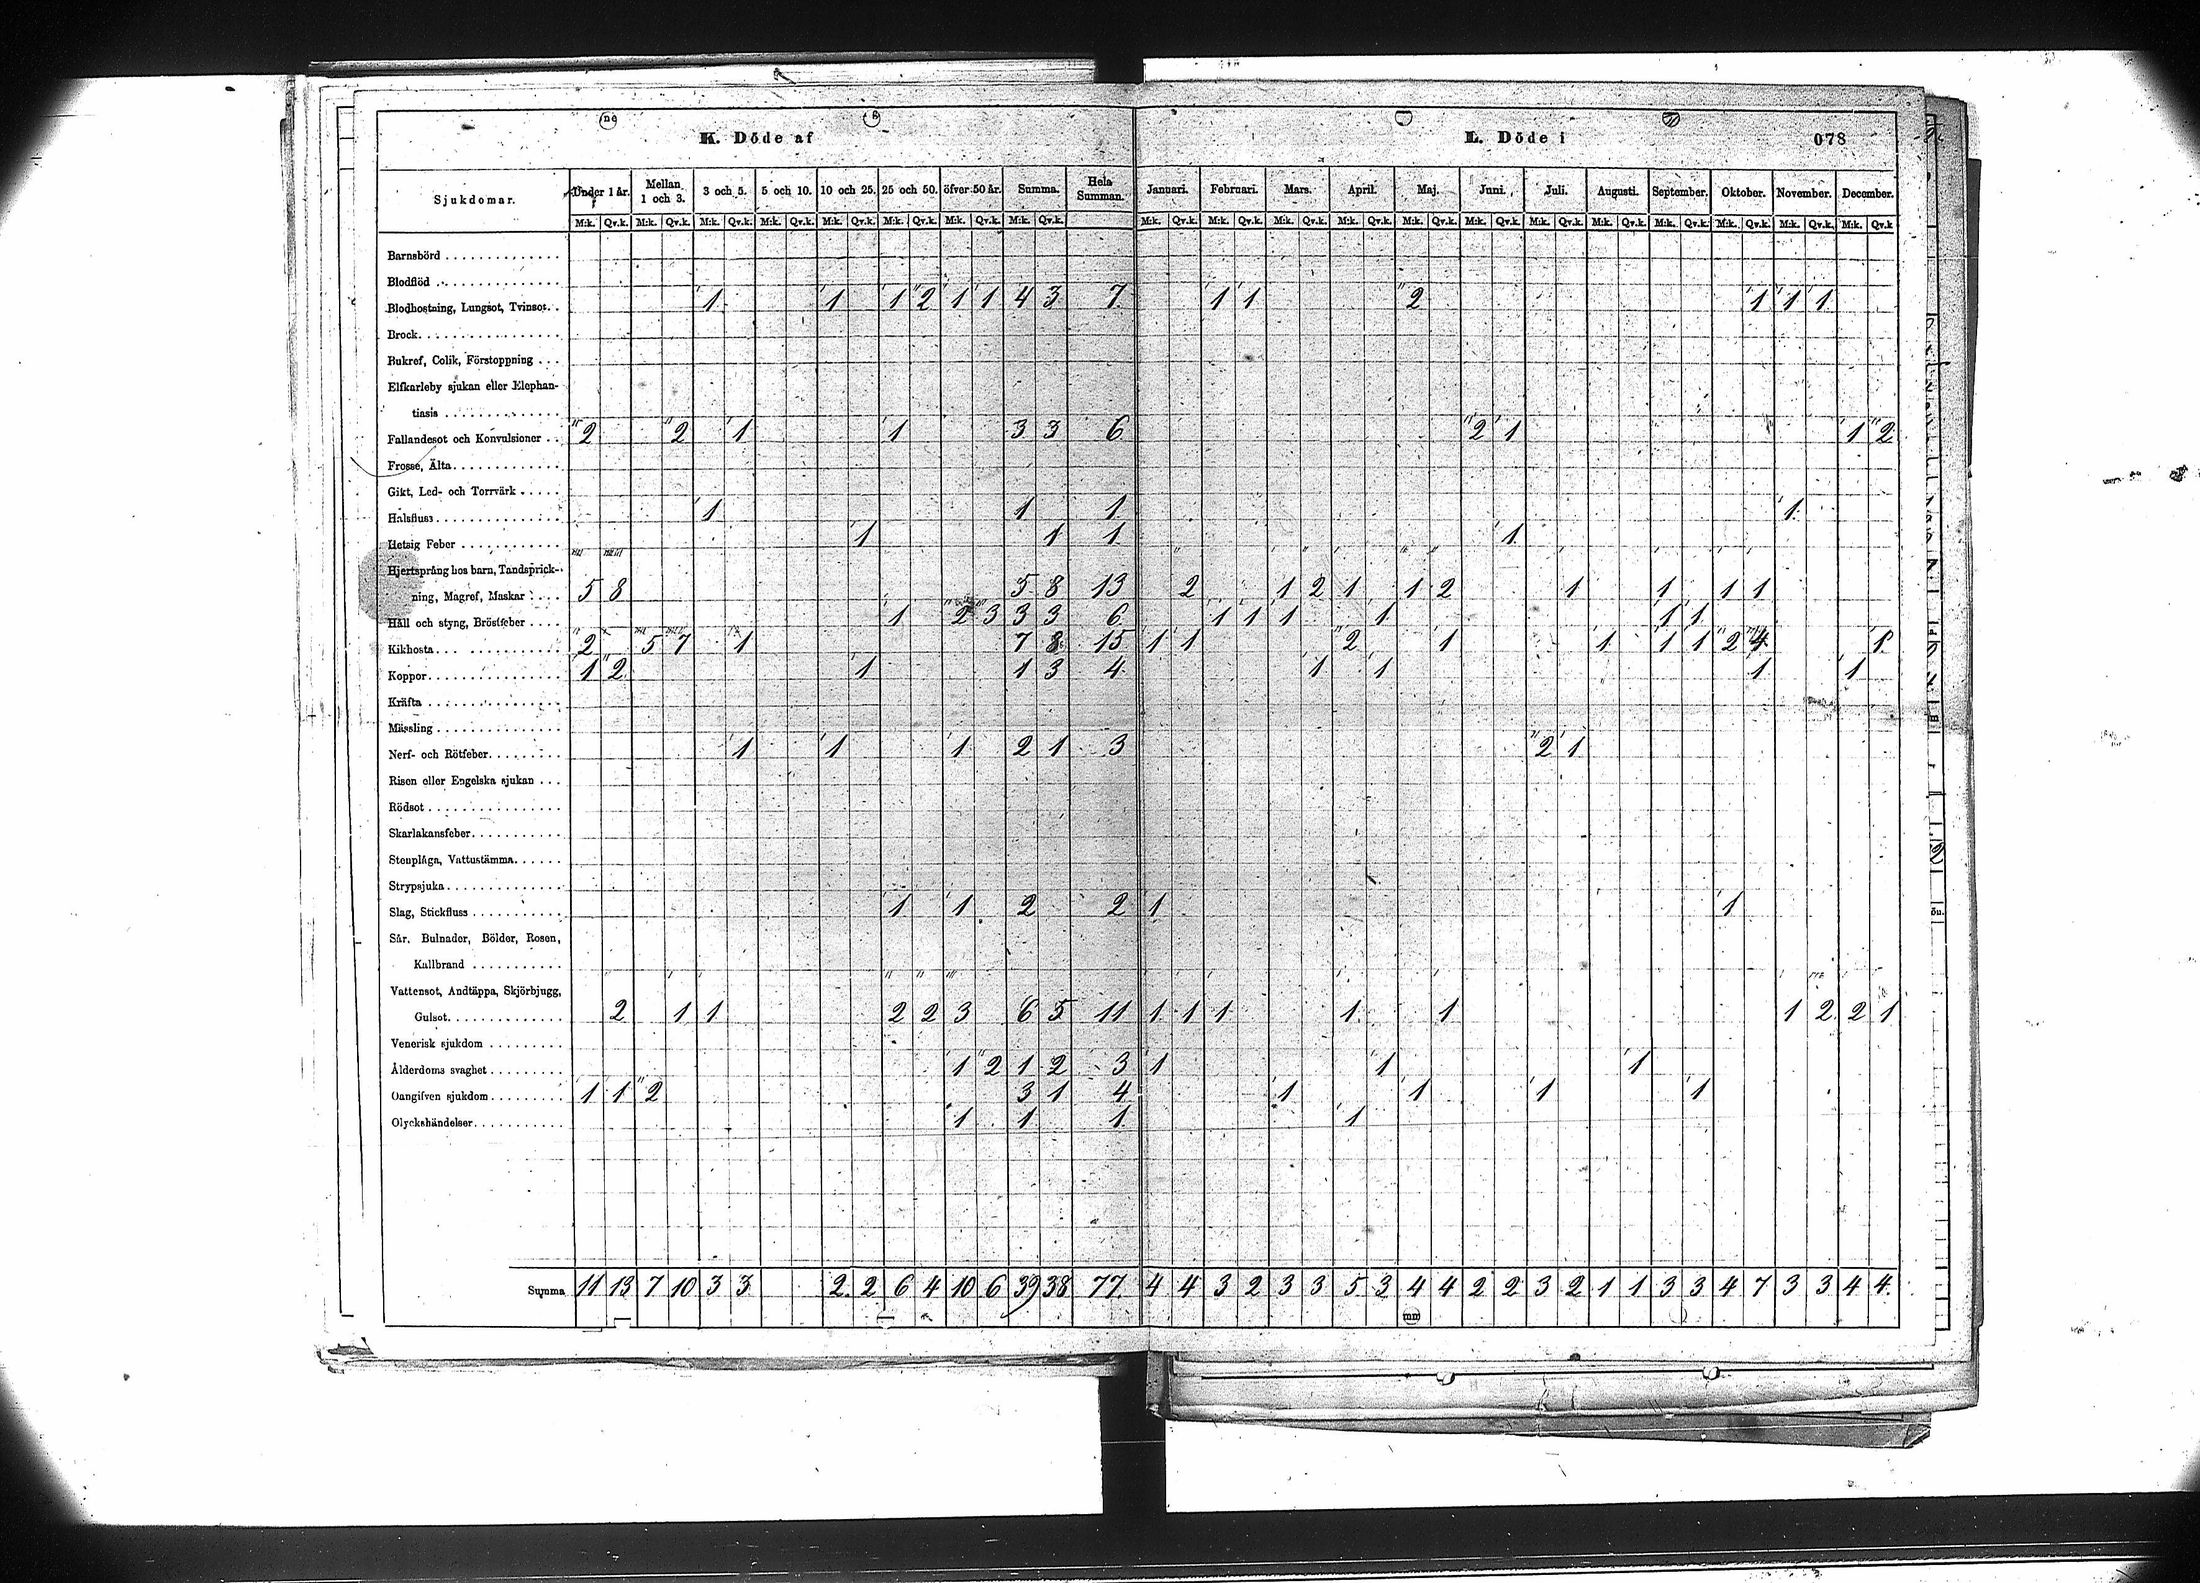 K. Döde af L. Döde i 078
Sjukdomar. Under 1 år. Mellan 1 och 3. 3 och 5. 5 och 10. 10 och 25. 25 och 50. öfver 50 år. Summa. Hela Summan. Januari. Februari. Mars. April. Maj. Juni. Juli. Augusti. September. Oktober. November. December.
M:k. Qv.k. M:k. Qv.k. M:k. Qv.k. M:k. Qv.k. M:k. Qv.k. M:k. Qv.k. M:k. Qv.k. M:k. Qv.k. M:k. Qv.k. M:k. Qv.k. M:k. Qv.k. M:k. Qv.k. M:k. Qv.k. M:k. Qv.k. M:k. Qv.k. M:k. Qv.k. M:k. Qv.k. M:k. Qv.k. M:k. Qv.k. M:k. Qv.k
Barnsbörd
Blodflöd
Blodhostning, Lungsot, Tvinsot. 1 1 1 2 1 1 4 3 7 1 1 2 1 1 1
Brock
Bukref, Colik, Förstoppning
Elfkarleby sjukan eller Elephan-
tiasis
Fallandesot och Konvulsioner 2 2 1 1 3 3 6 2 1 1 2
Frossa, Älta
Gikt, Led- och Torrvärk
Halsfluss 1 1 1 1
Hetsig Feber 1 1 1 1
Hjertsprång hos barn, Tandsprick-
ning, Magref, Maskar 5 8 5 8 13 2 1 2 1 1 2 1 1 1 1
Håll och styng, Bröstfeber 1 2 3 3 3 6 1 1 1 1 1 1
Kikhosta 2 5 7 1 7 8 15 1 1 2 1 1 1 1 2 4 1
Koppor 1 2 1 1 3 4 1 1 1 1
Kräfta
Mässling
Nerf- och Rötfeber 1 1 1 2 1 3 2 1
Risen eller Engelska sjukan
Rödsot
Skarlakansfeber
Stenplåga, Vattustämma
Strypsjuka
Slag, Stickfluss 1 1 2 2 1 1
Sår, Bulnader, Bölder, Rosen,
Kallbrand
Vattensot, Andtäppa, Skjörbjugg,
Gulsot 2 1 1 2 2 3 6 5 11 1 1 1 1 1 1 2 2 1
Venerisk sjukdom
Ålderdoms svaghet 1 2 1 2 3 1 1 1
Oangifven sjukdom 1 1 2 3 1 4 1 1 1 1
Olyckshändelser 1 1 1 1
Summa 11 13 7 10 3 3 2 2 6 4 10 6 39 38 77 4 4 3 2 3 3 5 3 4 4 2 2 3 2 1 1 3 3 4 7 3 3 4 4